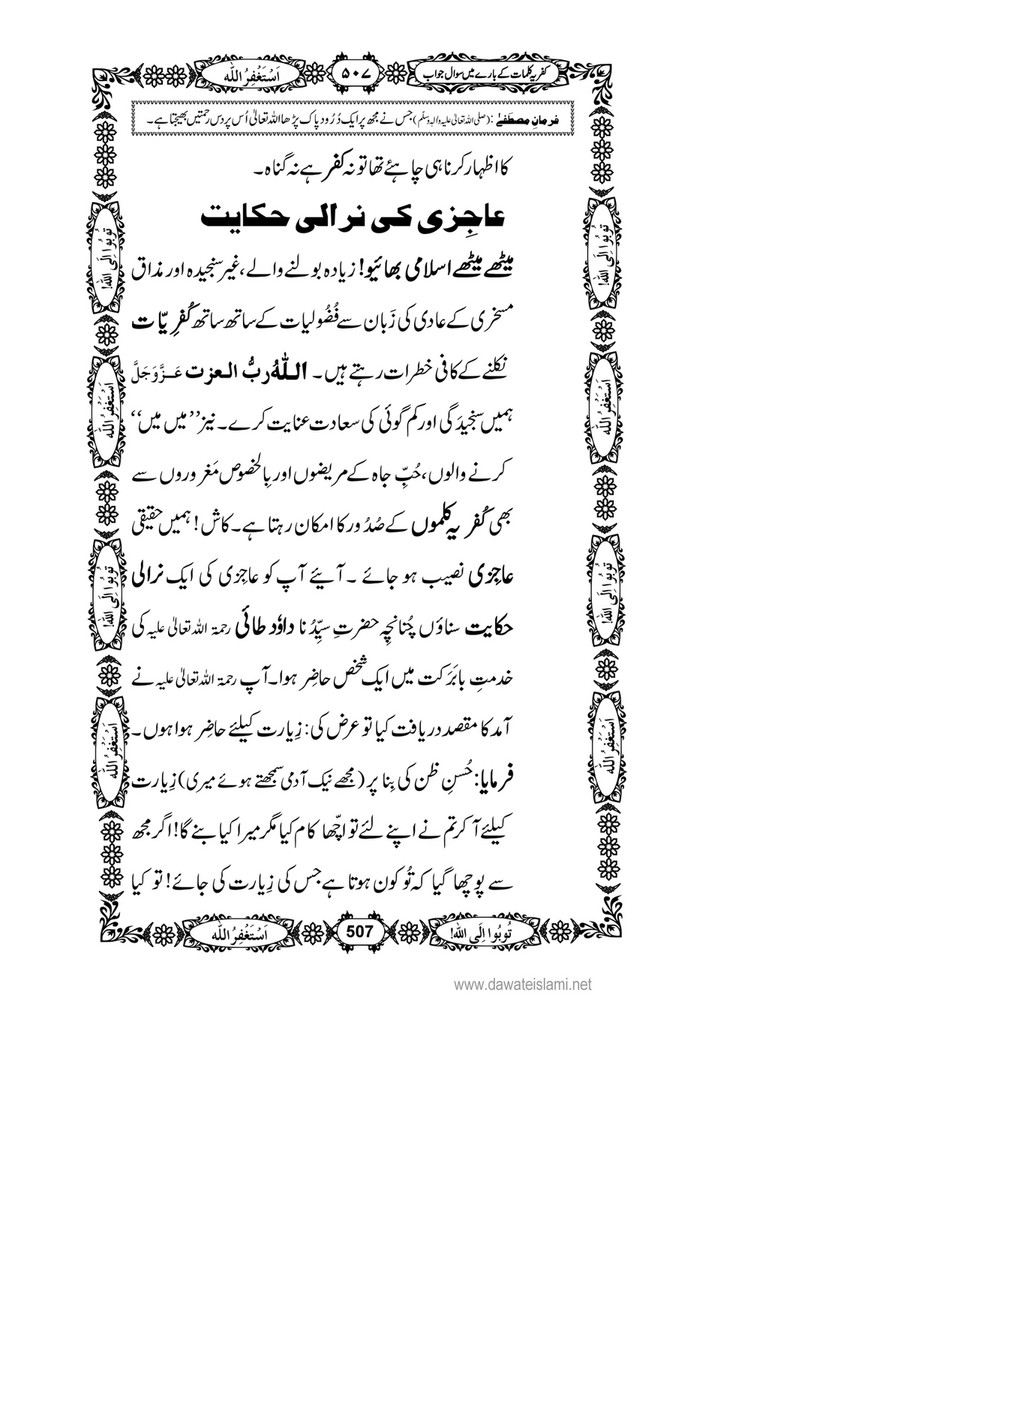 کفریہ کلمات کے بارے میں سوال جواب
۵۰۷
اَسْتَغْفِرُ اللّٰه
فرمانِ مصطَفٰے : (صلی اللہ تعالیٰ علیہ والہ وسلّم) جس نے مجھ پر ایک دُرُود پاک پڑھا اللہ تعالیٰ اُس پر دس رحمتیں بھیجتا ہے۔
کا اظہار کرنا ہی چاہئے تھا تو نہ کفر ہے نہ گناہ۔
عاجِزی کی نرالی حکایت
میٹھے میٹھے اسلامی بھائیو! زیادہ بولنے والے، غیر سنجیدہ اور مذاق
مسخری کے عادی کی زَبان سے فُضُولیات کے ساتھ ساتھ کُفرِیّات
نکلنے کے کافی خطرات رہتے ہیں۔ اللّٰهُ ربُّ العزت عَزَّوَجَلَّ
ہمیں سنجیدَگی اور کم گوئی کی سعادت عنایت کرے۔ نیز ’’میں میں‘‘
کرنے والوں، حُبِّ جاہ کے مریضوں اور بِالخصوص مَغروروں سے
بھی کُفریہ کلموں کے صُدُور کا امکان رہتا ہے۔ کاش! ہمیں حقیقی
عاجِزی نصیب ہو جائے ۔ آیئے آپ کو عاجِزی کی ایک نرالی
حکایت سناؤں چُنانچِہ حضرتِ سیِّدُنا داوٗد طائی رحمۃ اللہ تعالیٰ علیہ کی
خدمتِ بابَرَکت میں ایک شخص حاضِر ہوا۔ آپ رحمۃ اللہ تعالیٰ علیہ نے
آمد کا مقصد دریافت کیا تو عرض کی: زِیارت کیلئے حاضِر ہوا ہوں۔
فرمایا: حُسنِ ظن کی بِنا پر (مجھے نیک آدمی سمجھتے ہوئے میری) زِیارت
کیلئے آ کر تم نے اپنے لئے تو اچّھا کام کیا مگر میرا کیا بنے گا! اگر مجھ
سے پوچھا گیا کہ تُو کون ہوتا ہے جس کی زِیارت کی جائے! تو کیا
تُوبُوا اِلَی اللّٰه!
اَسْتَغْفِرُ اللّٰه
تُوبُوا اِلَی اللّٰه!
اَسْتَغْفِرُ اللّٰه
تُوبُوا اِلَی اللّٰه!
اَسْتَغْفِرُ اللّٰه
تُوبُوا اِلَی اللّٰه!
اَسْتَغْفِرُ اللّٰه
تُوبُوا اِلَی اللّٰه!
507
اَسْتَغْفِرُ اللّٰه
www.dawateislami.net